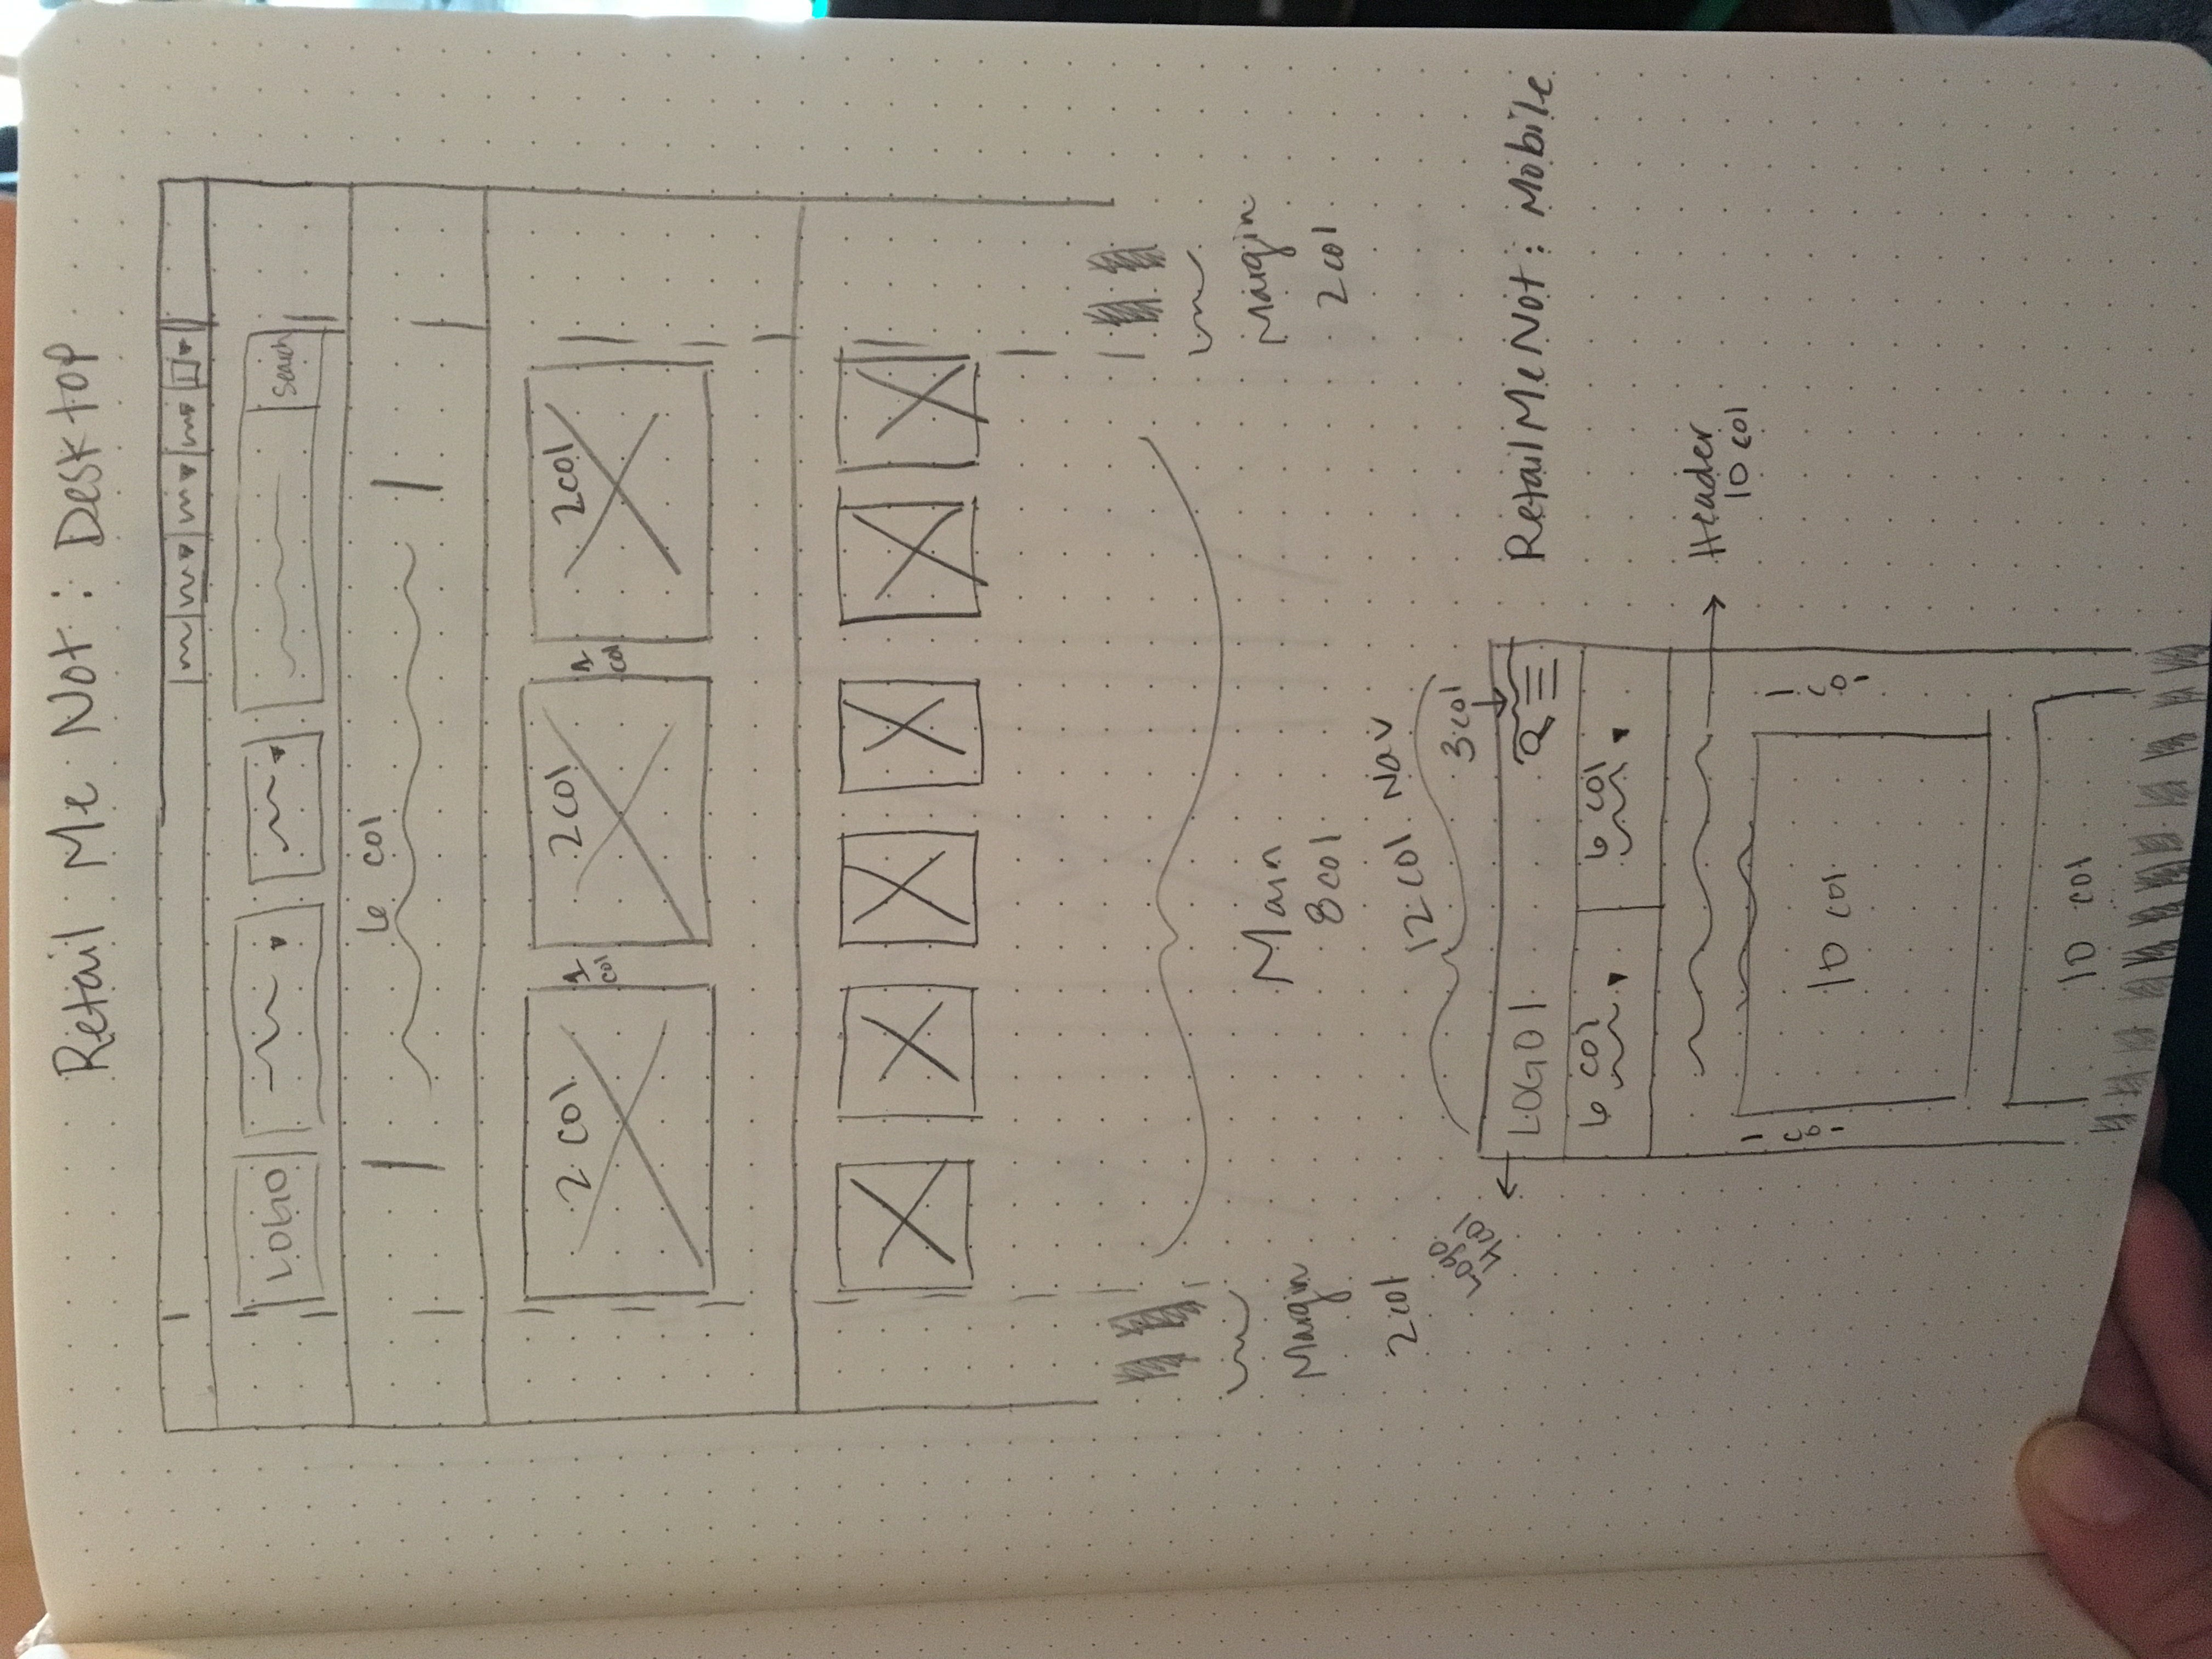 Retail Me Not: Desktop
LOGO
Search
6 col
2 col
1 col
2 col
1 col
2 col
Margin
2 col
Main
8 col
Margin
2 col
12 col Nav
Logo
4 col
3 col
LOGO
RetailMeNot: Mobile
6 col
6 col
Header
10 col
1 col
10 col
1 col
10 col